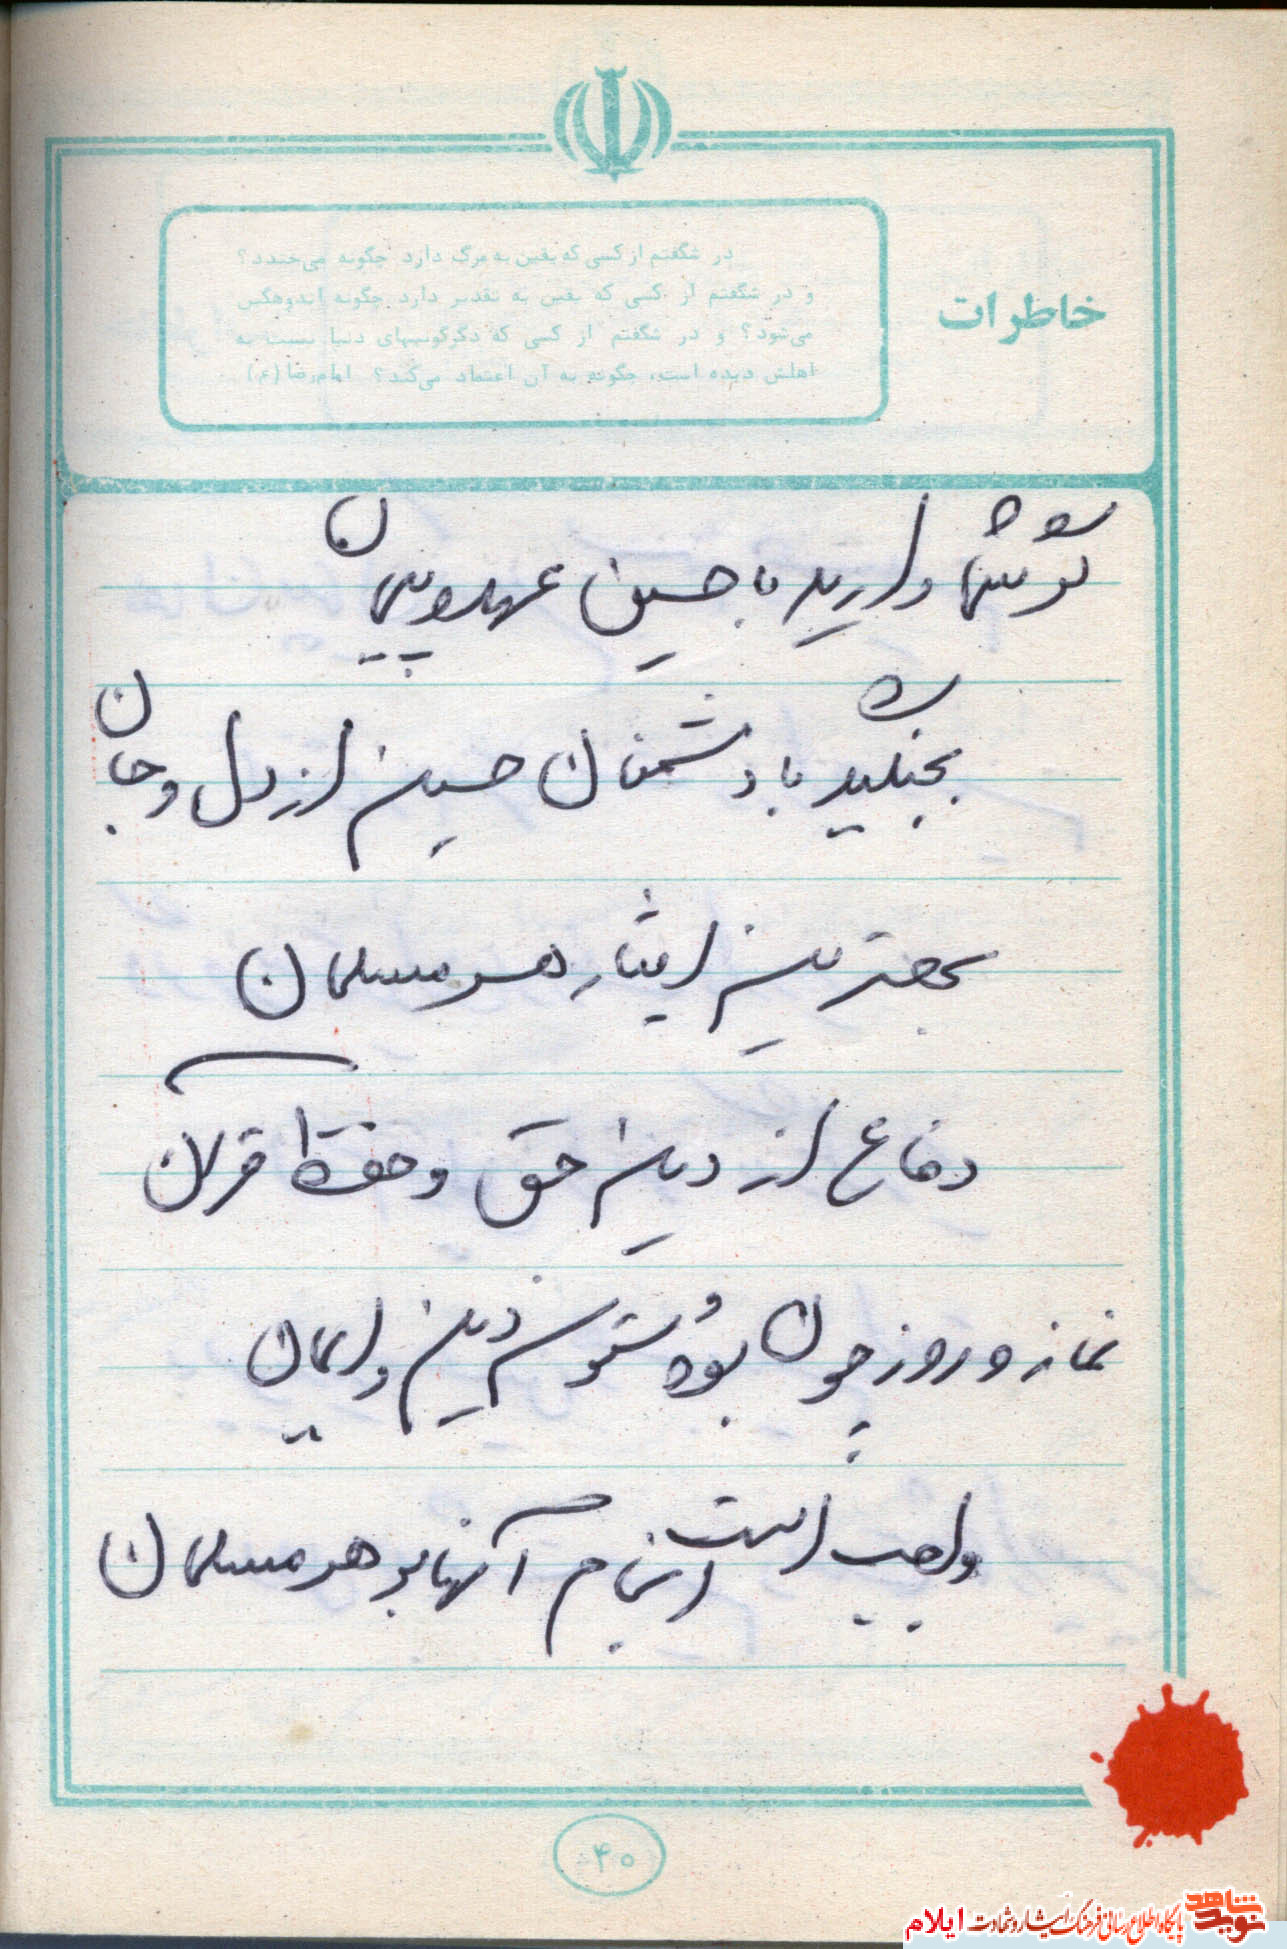 در شگفتم از کسی که یقین به مرگ دارد چگونه می‌خندد؟
و در شگفتم از کسی که یقین به تقدیر دارد چگونه اندوهگین
می‌شود؟ و در شگفتم از کسی که دگرگونیهای دنیا نسبت به
اهلش دیده است، چگونه به آن اعتماد می‌کند؟ امام‌رضا (ع)
خاطرات
شما دارید با حسین عهد و پیمان
بجنگید با دشمنان حسین از دل و جان
بهترین ایثار هر مسلمان
دفاع از دین حق و حفظ قرآن
نماز و روز چون بود ستون دین و ایمان
واجب است انجام آنها بر هر مسلمان
۴۰
نوید شاهد
پایگاه اطلاع رسانی فرهنگ ایثار و شهادت ایلام